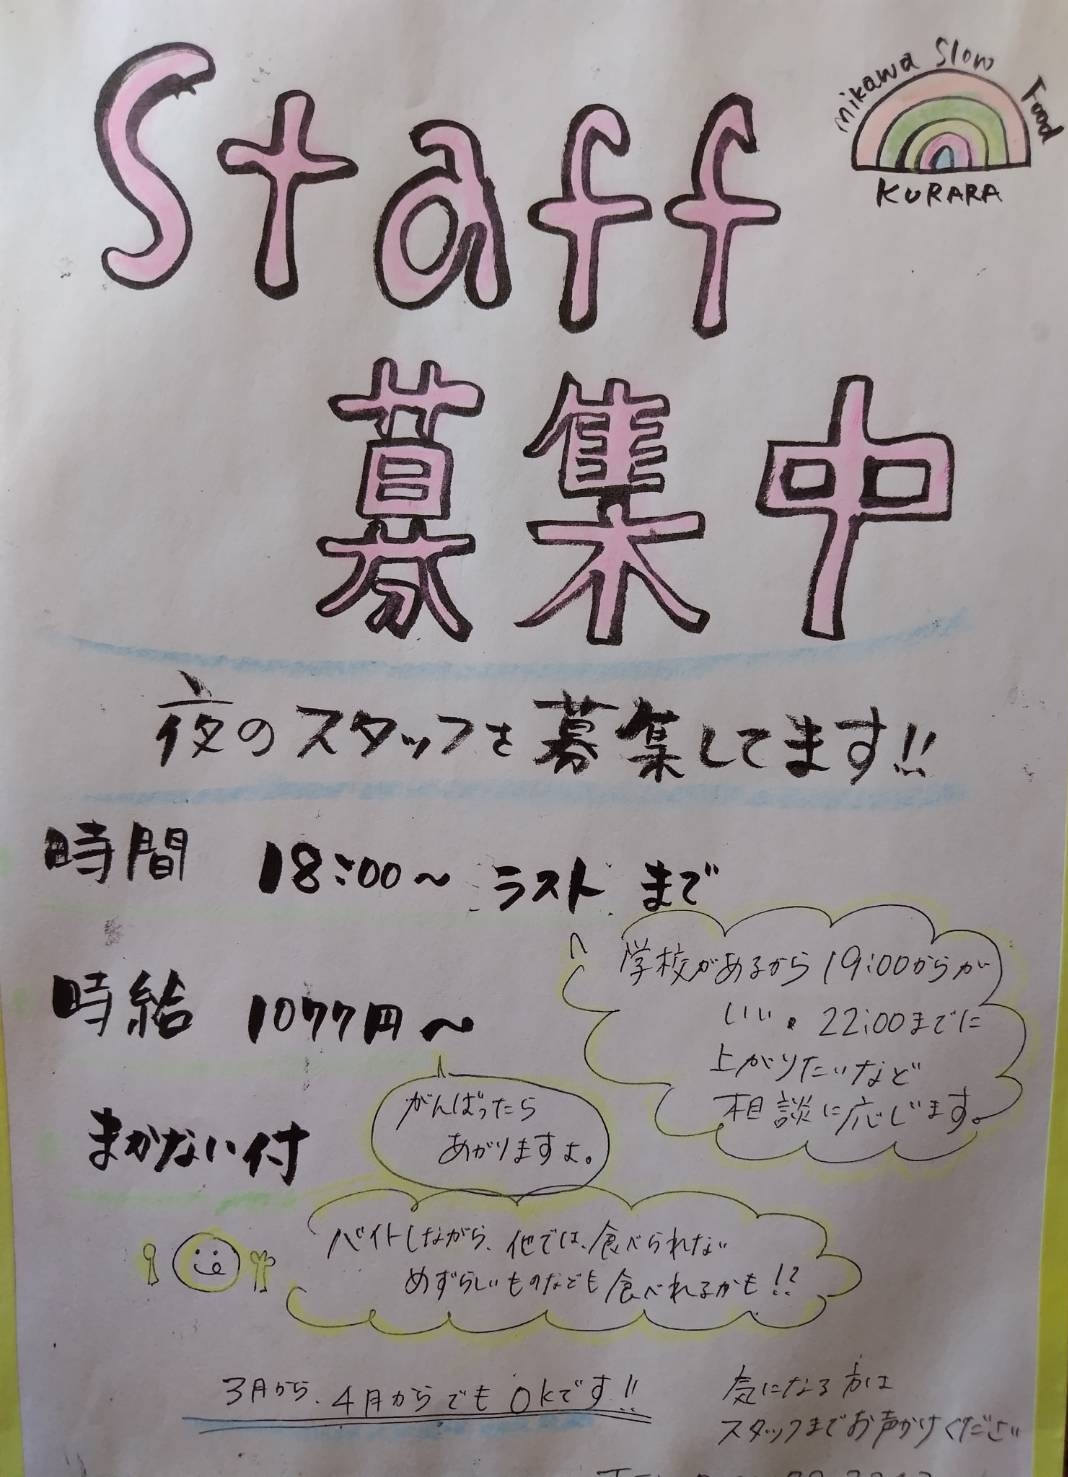 Staff
mikawa Slow Food
KURARA
募集中
夜のスタッフを募集してます!!
時間 18:00〜 ラスト まで
学校があるから 19:00からが
いい。22:00までに
上がりたいなど
相談に応じます。
時給 1077円〜
がんばったら
あがりますよ。
まかない付
バイトしながら、他では、食べられない
めずらしいものなども食べれるかも!?
3月から、4月からでも OKです!!
気になる方は
スタッフまでお声かけください